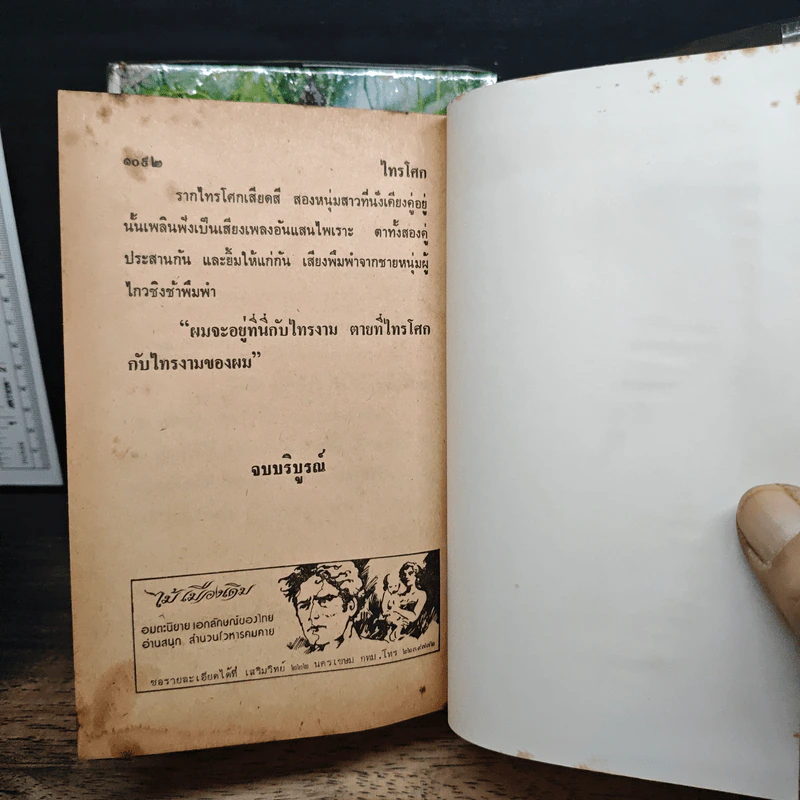 ๑๐๙๒
ไทรโศก
รากไทรโศกเสียดสี สองหนุ่มสาวที่นั่งเคียงคู่อยู่
นั้นเพลินฟังเป็นเสียงเพลงอันแสนไพเราะ ตาทั้งสองคู่
ประสานกัน และยิ้มให้แก่กัน เสียงพึมพำจากชายหนุ่มผู้
ไกวชิงช้าพึมพำ
“ผมจะอยู่ที่นี่กับไทรงาม ตายที่ไทรโศก
กับไทรงามของผม”
จบบริบูรณ์
ไม้ เมืองเดิม
อมตะนิยาย เอกลักษณ์ของไทย
อ่านสนุก สำนวนโวหารคมคาย
ขอรายละเอียดได้ที่ เสริมวิทย์ ๒๒๒ นครเขษม กทม. โทร